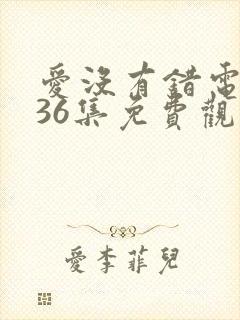 愛沒有錯電
36集免費觀
愛李菲兒